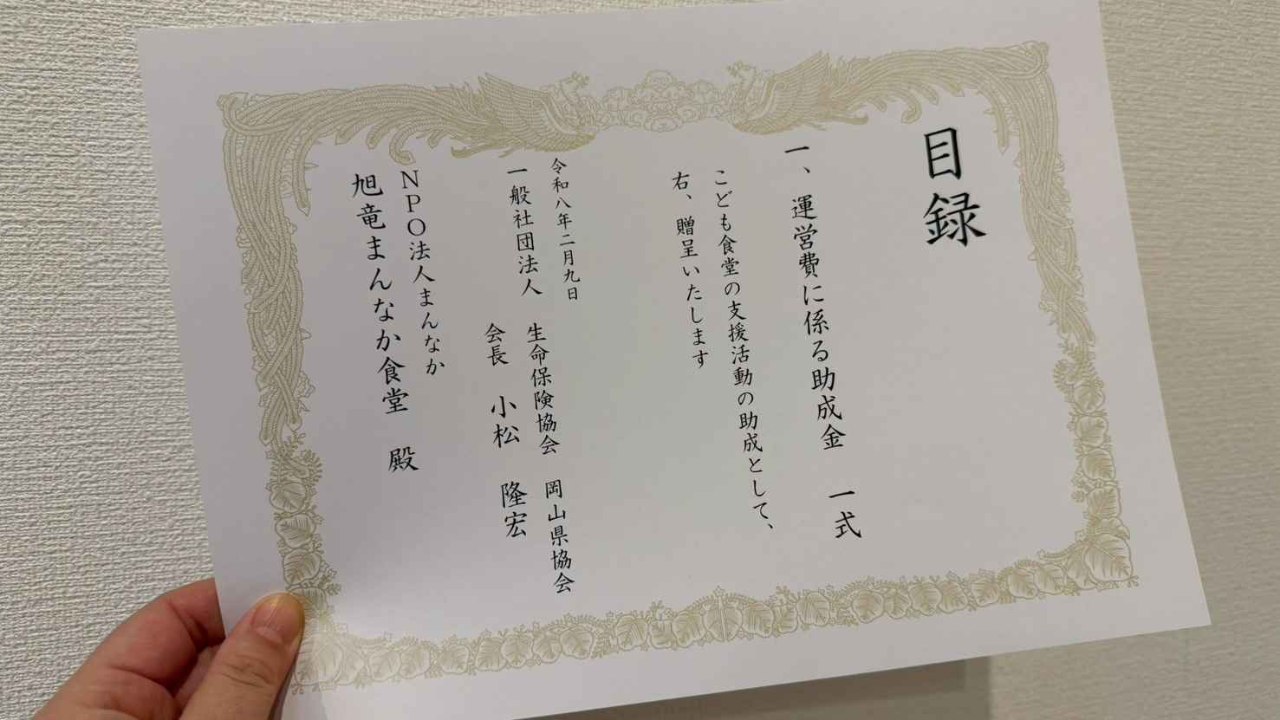 目録
一、運営費に係る助成金 一式
こども食堂の支援活動の助成として、
右、贈呈いたします
令和八年二月九日
一般社団法人 生命保険協会 岡山県協会
会長 小松 隆宏
NPO法人まんなか
旭竜まんなか食堂 殿